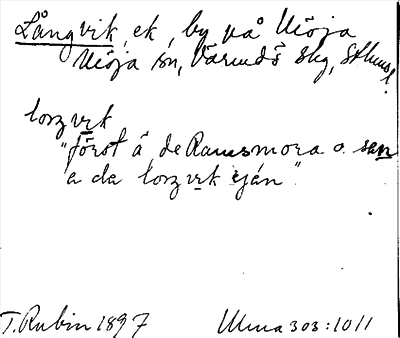 Långvik, ek, by på Möja
Möja sn, Värmdö skg, Sthms l.
loŋvɩk
"först ä de Ramsmora o. san
a da loŋvɩk ijän".
T. Rubin 1897 Ulma 303:1011